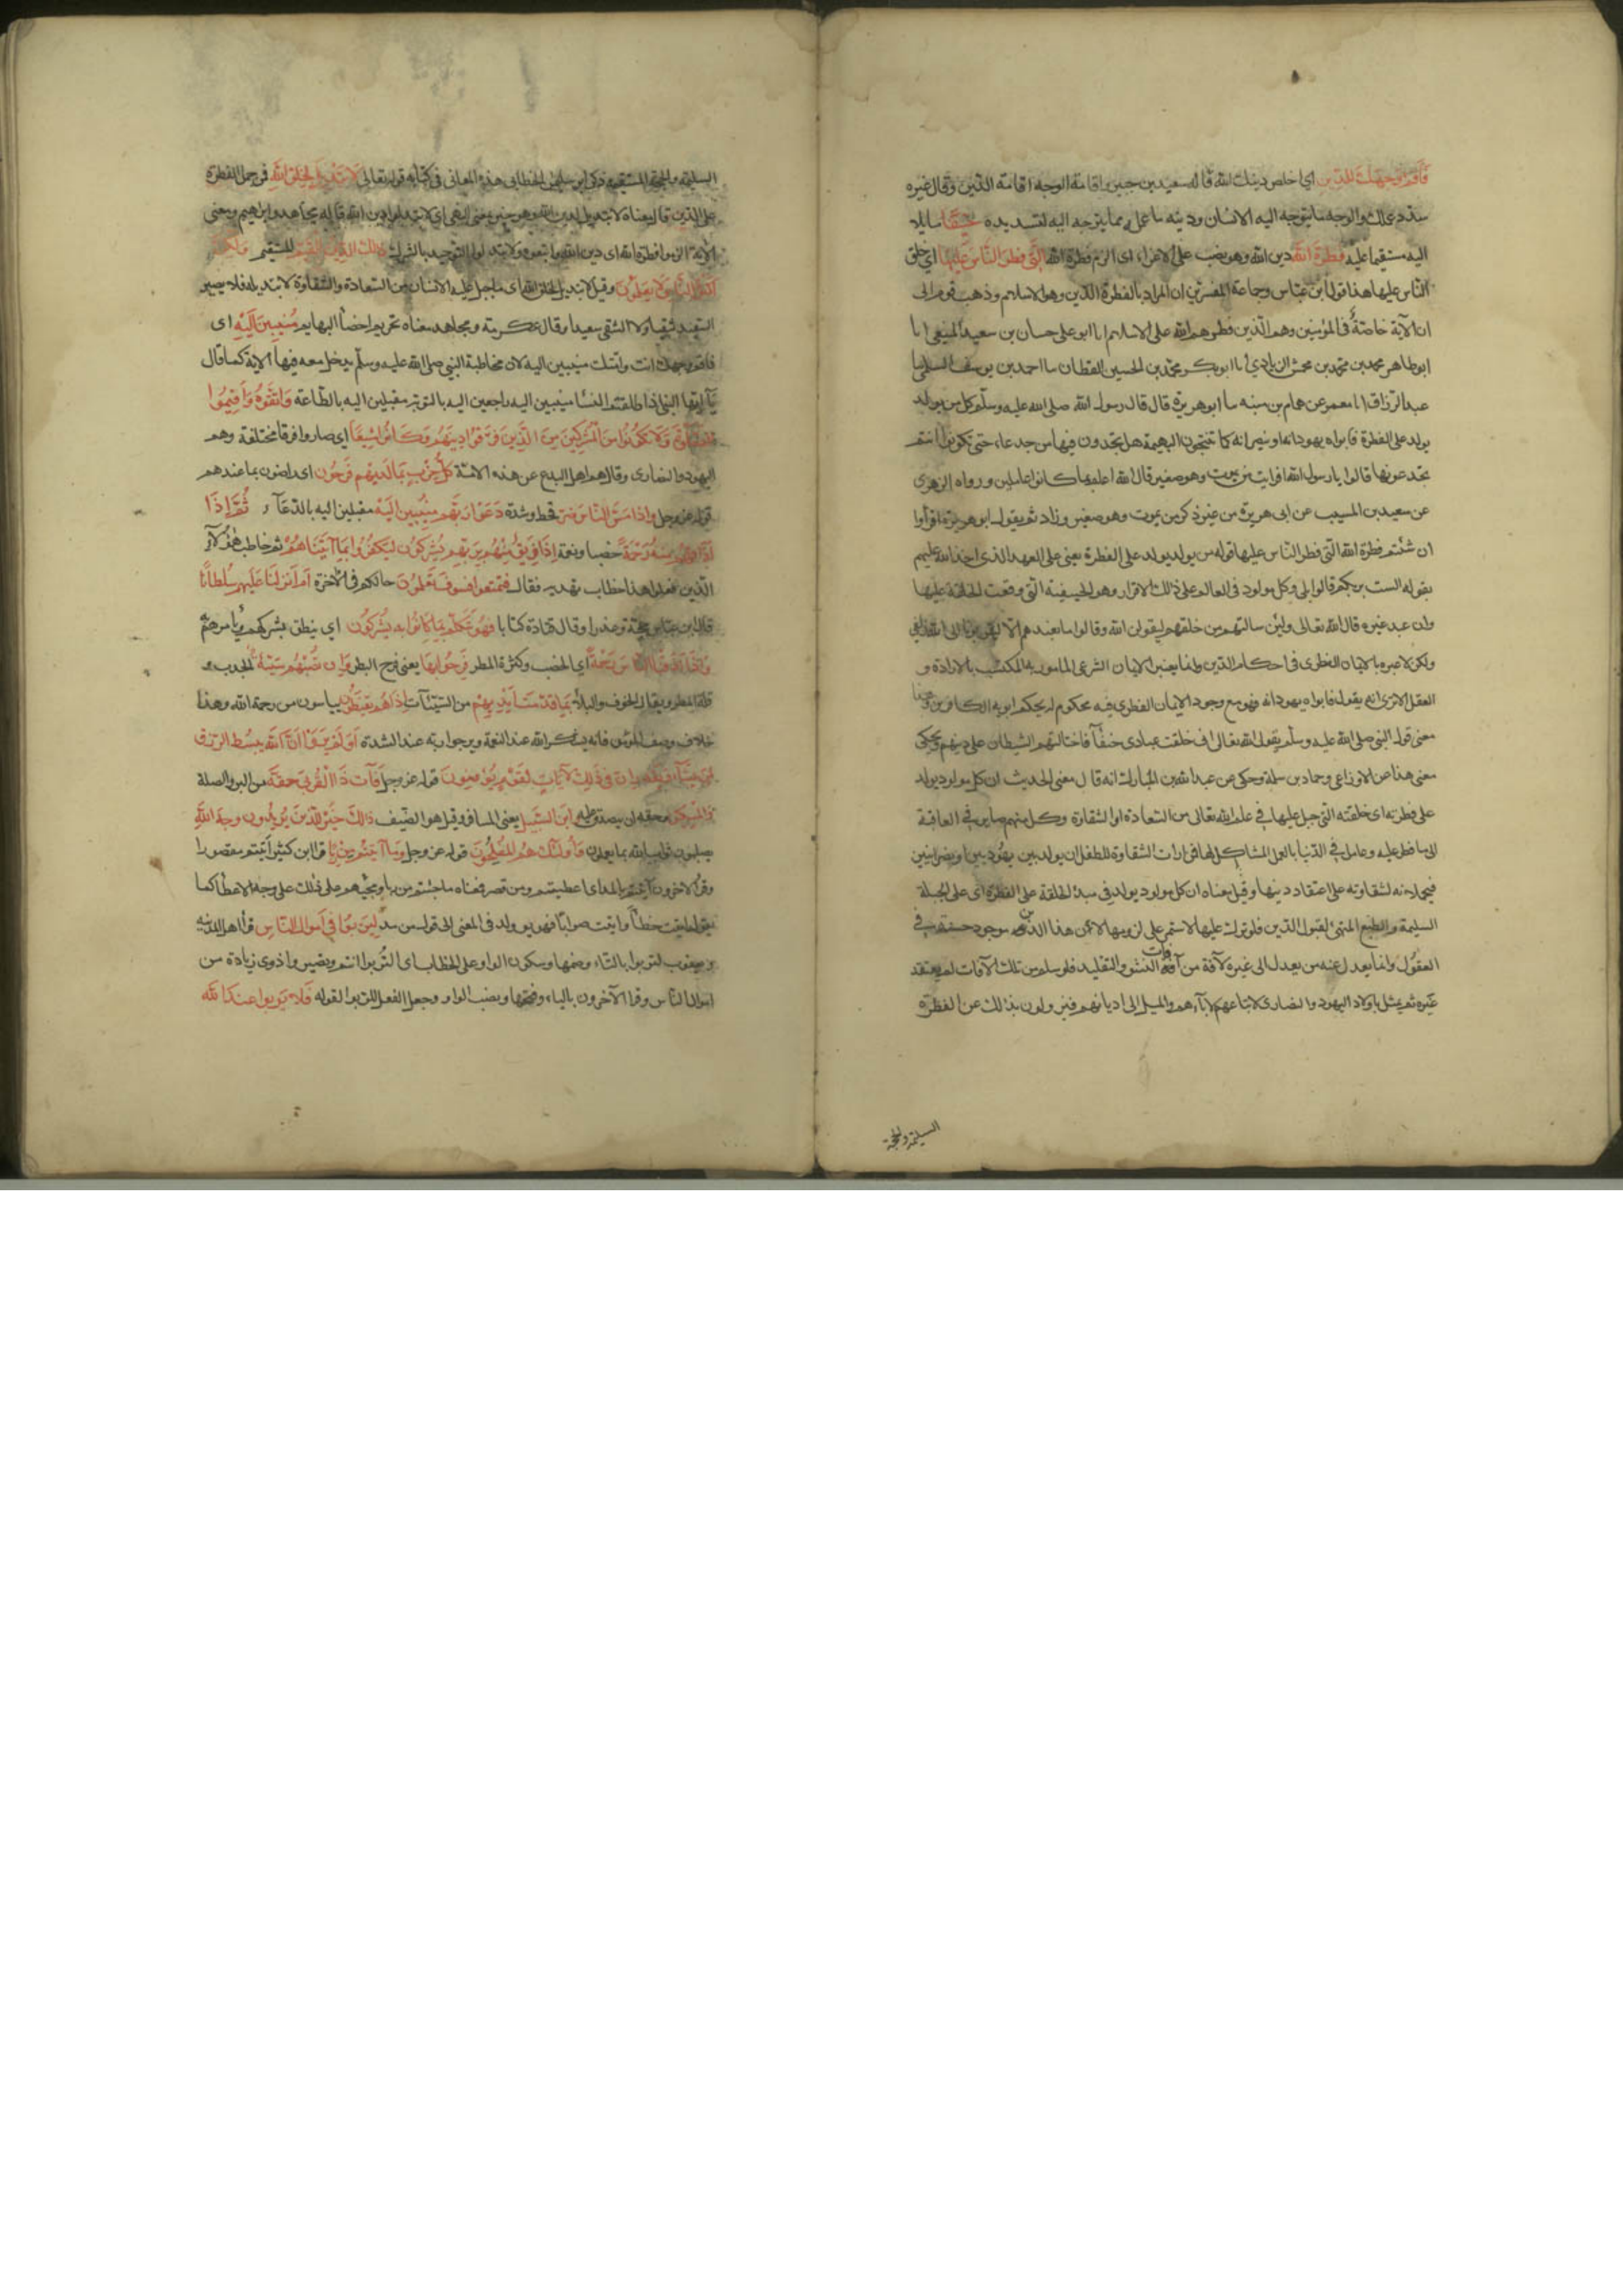 فَأَقِمْ وَجْهَكَ لِلدِّينِ اي اخلص دينك لله قاله سعيد بن جبير واقامة الوجه اقامة الدين وقال غيره
سدد عملك والوجه ما يتوجه اليه الانسان ودينه ما عمله مما يتوجه اليه لتسديده حَنِيفًا مايلا
اليه مستقيما عليه فِطْرَةَ اللهِ دين الله وهو نصب على الاغراء اى الزم فطرة الله الَّتِي فَطَرَ النَّاسَ عَلَيْهَا اي خلق
الناس عليها هذا قول ابن عباس وجماعة المفسرين ان المراد بالفطرة الدين وهو الاسلام وذهب قوم الى
ان الآية خاصةٌ في المؤمنين وهم الذين فطرهم الله على الاسلام انا ابو على حسان بن سعيد المنيعي انا
ابو طاهر محمد بن محمد بن محمش الزيادي انا ابو بكر محمد بن الحسين القطان سا احمد بن يوسف السلمي سا
عبد الرزاق انا معمر عن همام بن منبه سا ابو هريرة قال قال رسول الله صلى الله عليه وسلم كل من يولد
يولد على الفطرة فابواه يهودانه او ينصرانه كما تنتجون البهيمة هل تجدون فيها من جدعاء حتى تكونوا انتم
تجدعونها قالوا يا رسول الله افرايت من يموت وهو صغير قال الله اعلم بما كانوا عاملين ورواه الزهرى
عن سعيد بن المسيب عن ابى هريرة من غير ذكر من يموت وهو صغير وزاد ثم يقول ابو هريرة اقرأوا
ان شئتم فطرة الله التى فطر الناس عليها قوله من يولد يولد على الفطرة يعنى على العهد الذى اخذ الله عليهم
بقوله الست بربكم قالوا بلى وكل مولود فى العالم على ذلك الاقرار وهو الحنيفية التى وقعت الخلقة عليها
وان عبد غيره قال الله تعالى ولئن سالتهم من خلقهم ليقولن الله وقالوا ما نعبدهم الا ليقربونا الى الله زلفى
ولكن لا عبرة بالايمان الفطرى فى احكام الدين وانما يعتبر الايمان الشرعى المامور به المكتسب بالارادة و
العقل الا ترى انه يقول فابواه يهودانه فهو مع وجود الايمان الفطرى فيه محكوم له بحكم ابويه الكافرين وهذا
معنى قول النبى صلى الله عليه وسلم يقول الله تعالى انى خلقت عبادى حنفآ فاختالتهم الشيطان على دينهم ويحكى
معنى هذا عن الاوزاعى وحماد بن سلمة وحكى عن عبد الله بن المبارك انه قال معنى الحديث ان كل مولود يولد
على فطرته اى خلقته التى جبل عليها فى علم الله تعالى من السعادة او الشقاوة وكل منهم صاير فى العاقبة
الى ما فطر عليه وعامل فى الدنيا بالعمل المشاكل لها فمن امارات الشقاوة للطفل ان يولد بين يهوديين او نصرانيين
فيحملانه لشقاوته على اعتقاد دينهما وقيل معناه ان كل مولود يولد فى مبدا الخلقة على الفطرة اى على الجبلة
السليمة والطبع المتهئ لقبول الدين فلو ترك عليها لاستمر على لزومها لان هذا الدين موجود حسنه فى
العقول وانما يعدل عنه من يعدل الى غيره لآفة من آفات النشو والتقليد فلو سلم من تلك الآفات لم يعتقد
غيره ثم يمثل باولاد اليهود والنصارى لاتباعهم لآبآءهم والميل الى اديانهم فيزولون بذلك عن الفطرة
السليمة والمحجة
السليمة والمحجة المستقيمة ذكر ابو سليمن الخطابى هذه المعانى فى كتابه قوله تعالى لَا تَبْدِيلَ لِخَلْقِ اللهِ فمن حمل الفطرة
على الدين قال معناه لا تبديل لدين الله وهو خبر بمعنى النهى اى لا تبدلوا دين الله قاله مجاهد وابرهيم ومعنى
الآية الزموا فطرة الله اى دين الله واتبعوه ولا تبدلوا التوحيد بالشرك ذَلِكَ الدِّينُ الْقَيِّمُ المستقيم وَلَكِنَّ
أَكْثَرَ النَّاسِ لَا يَعْلَمُونَ وقيل لا تبديل لخلق الله اى ما جبل عليه الانسان من السعادة والشقاوة لا تبديله فلا يصير
السعيد شقيا ولا الشقى سعيدا وقال عكرمة ومجاهد معناه تحريم اخصأ البهايم مُنِيبِينَ إِلَيْهِ اى
فاقم وجهك انت وامتك منيبين اليه لان مخاطبة النبى صلى الله عليه وسلم يدخل معه فيها الامة كما قال
يَآ ايها النبى اذا طلقتم النسآ منيبين اليه راجعين اليه بالتوبة مقبلين اليه بالطاعة وَاتَّقُوهُ وَأَقِيمُوا
الصَّلَوةَ وَلَا تَكُونُوا مِنَ الْمُشْرِكِينَ مِنَ الَّذِينَ فَرَّقُوْا دِينَهُمْ وَكَانُوا شِيَعًا اى صاروا فرقا مختلفة وهم
اليهود والنصارى وقال هم اهل البدع من هذه الامة كُلُّ حِزْبٍ بِمَا لَدَيْهِمْ فَرِحُون اى راضون بما عندهم
قوله عز وجل وَاِذَا مَسَّ النَّاسَ ضُرٌّ قحط وشدة دَعَوْا رَبَّهُم مُنِيبِينَ اِلَيْهِ مقبلين اليه بالدعآء ثُمَّ إِذَا
أَذَاقَهُمْ مِنْهُ رَحْمَةً خصبا ونعمة إِذَا فَرِيقٌ مِنْهُمْ بِرَبِّهِمْ يُشْرِكُون لِيَكْفُرُوا بِمَا آتَيْنَاهُمْ ثم خاطب هؤلآء
الذين فعلوا هذا خطاب تهديد فقال فَتَمَتَّعُوا فَسَوْفَ تَعْلَمُونَ حالكم فى الآخرة أَمْ أَنْزَلْنَا عَلَيْهِمْ سُلْطَانًا
قال ابن عباس حجة وعذرا وقال قتادة كتابا فَهُوَ يَتَكَلَّمُ بِمَا كَانُوا بِهِ يُشْرِكُون اي ينطق بشركهم ويأمرهم به
وَإِذَا أَذَقْنَا النَّاسَ رَحْمَةً اي الخصب وكثرة المطر فَرِحُوا بِهَا يعنى فرح البطر وَإِن تُصِبْهُمْ سَيِّئَةٌ الجدب و
قلة المطر ويقال الخوف والبلآء بِمَا قَدَّمَتْ أَيْدِيهِمْ من السيئآت إِذَا هُمْ يَقْنَطُونَ يياسون من رحمة الله وهذا
خلاف وصف المؤمن فانه يشكر الله عند النعمة ويرجوا ربه عند الشدة أَوَلَمْ يَرَوْا أَنَّ اللهَ يَبْسُطُ الرِّزْقَ
لِمَن يَشَآء وَيَقْدِرُ إِنَّ فِي ذَلِكَ لَآيَاتٍ لِقَوْمٍ يُؤْمِنُونَ قوله عز وجل فَآتِ ذَا الْقُرْبَى حَقَّهُ من البر والصلة
وَالْمِسْكِينَ وحقه ان يتصدق عليه وَابْنَ السَّبِيل يعنى المسافر وقيل هو الضيف ذَلِكَ خَيْرٌ لِلَّذِينَ يُرِيدُون وَجْهَ اللهِ
يطلبون ثواب الله بما يعملون وَأُولَئِكَ هُمُ الْمُفْلِحُونَ قوله عز وجل وَمَآ آتَيْتُم مِن رِبًا قرا ابن كثير أتيتم مقصورا
وقرأ الآخرون آتيتم بالمد اى اعطيتم ومن قصر فمعناه ما جئتم من ربا ومجيئهم على ذلك على وجه الاعطآ كما
يقول اتيت خطأ واتيت صوابا فهو يوول فى المعنى الى قول من مد لِيَرْبُوَا فِي أَمْوَالِ النَّاسِ قرا اهل المدينة
ويعقوب لتربوا بالتاء وضمها وسكون الواو على الخطاب اى لتُربوا انتم وتصيروا ذوى زيادة من
اموال الناس وقرا الآخرون بالياء وفتحها ونصب الواو وجعل الفعل للربوا لقوله فَلَا يَرْبُوا عِنْدَ اللهِ